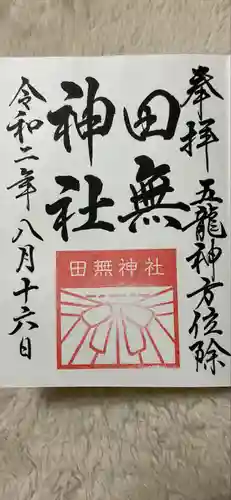 奉拝 五龍神方位除
田無
神社
田無神社
令和二年八月十六日